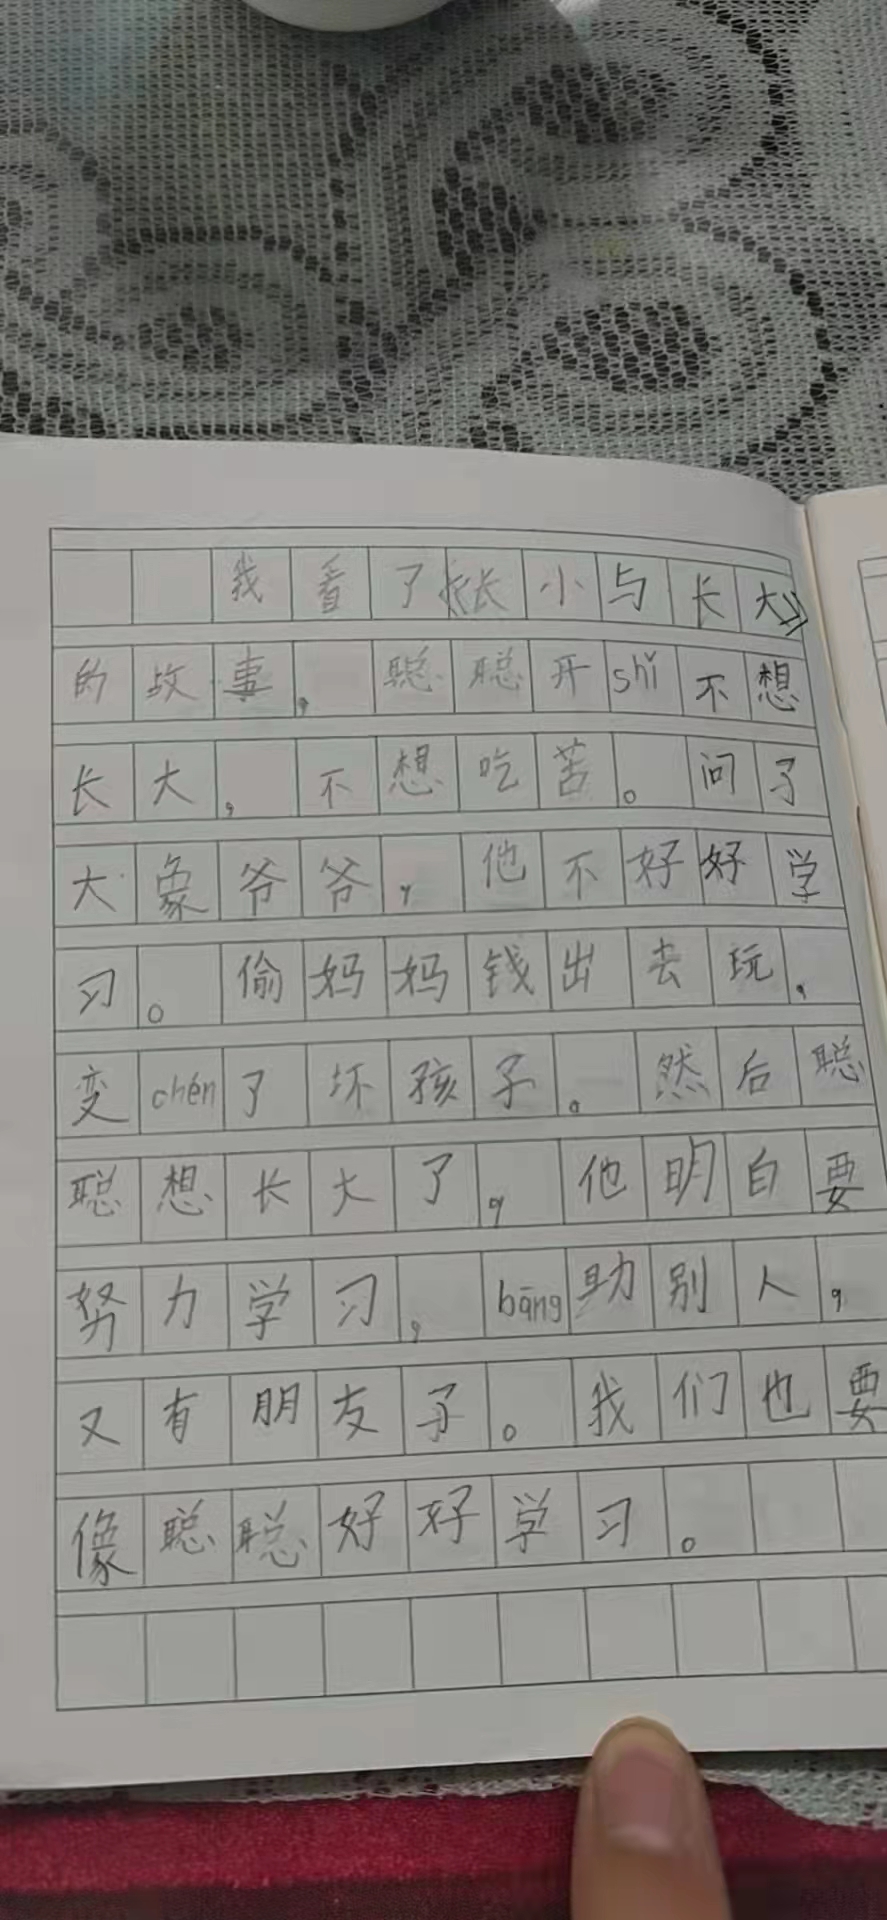 我看了《长小与长大》
的故事，聪聪开shǐ不想
长大，不想吃苦。问了
大象爷爷，他不好好学
习。偷妈妈钱出去玩，
变chén了坏孩子。然后聪
聪想长大了，他明白要
努力学习，bāng助别人，
又有朋友了。我们也要
像聪聪好好学习。